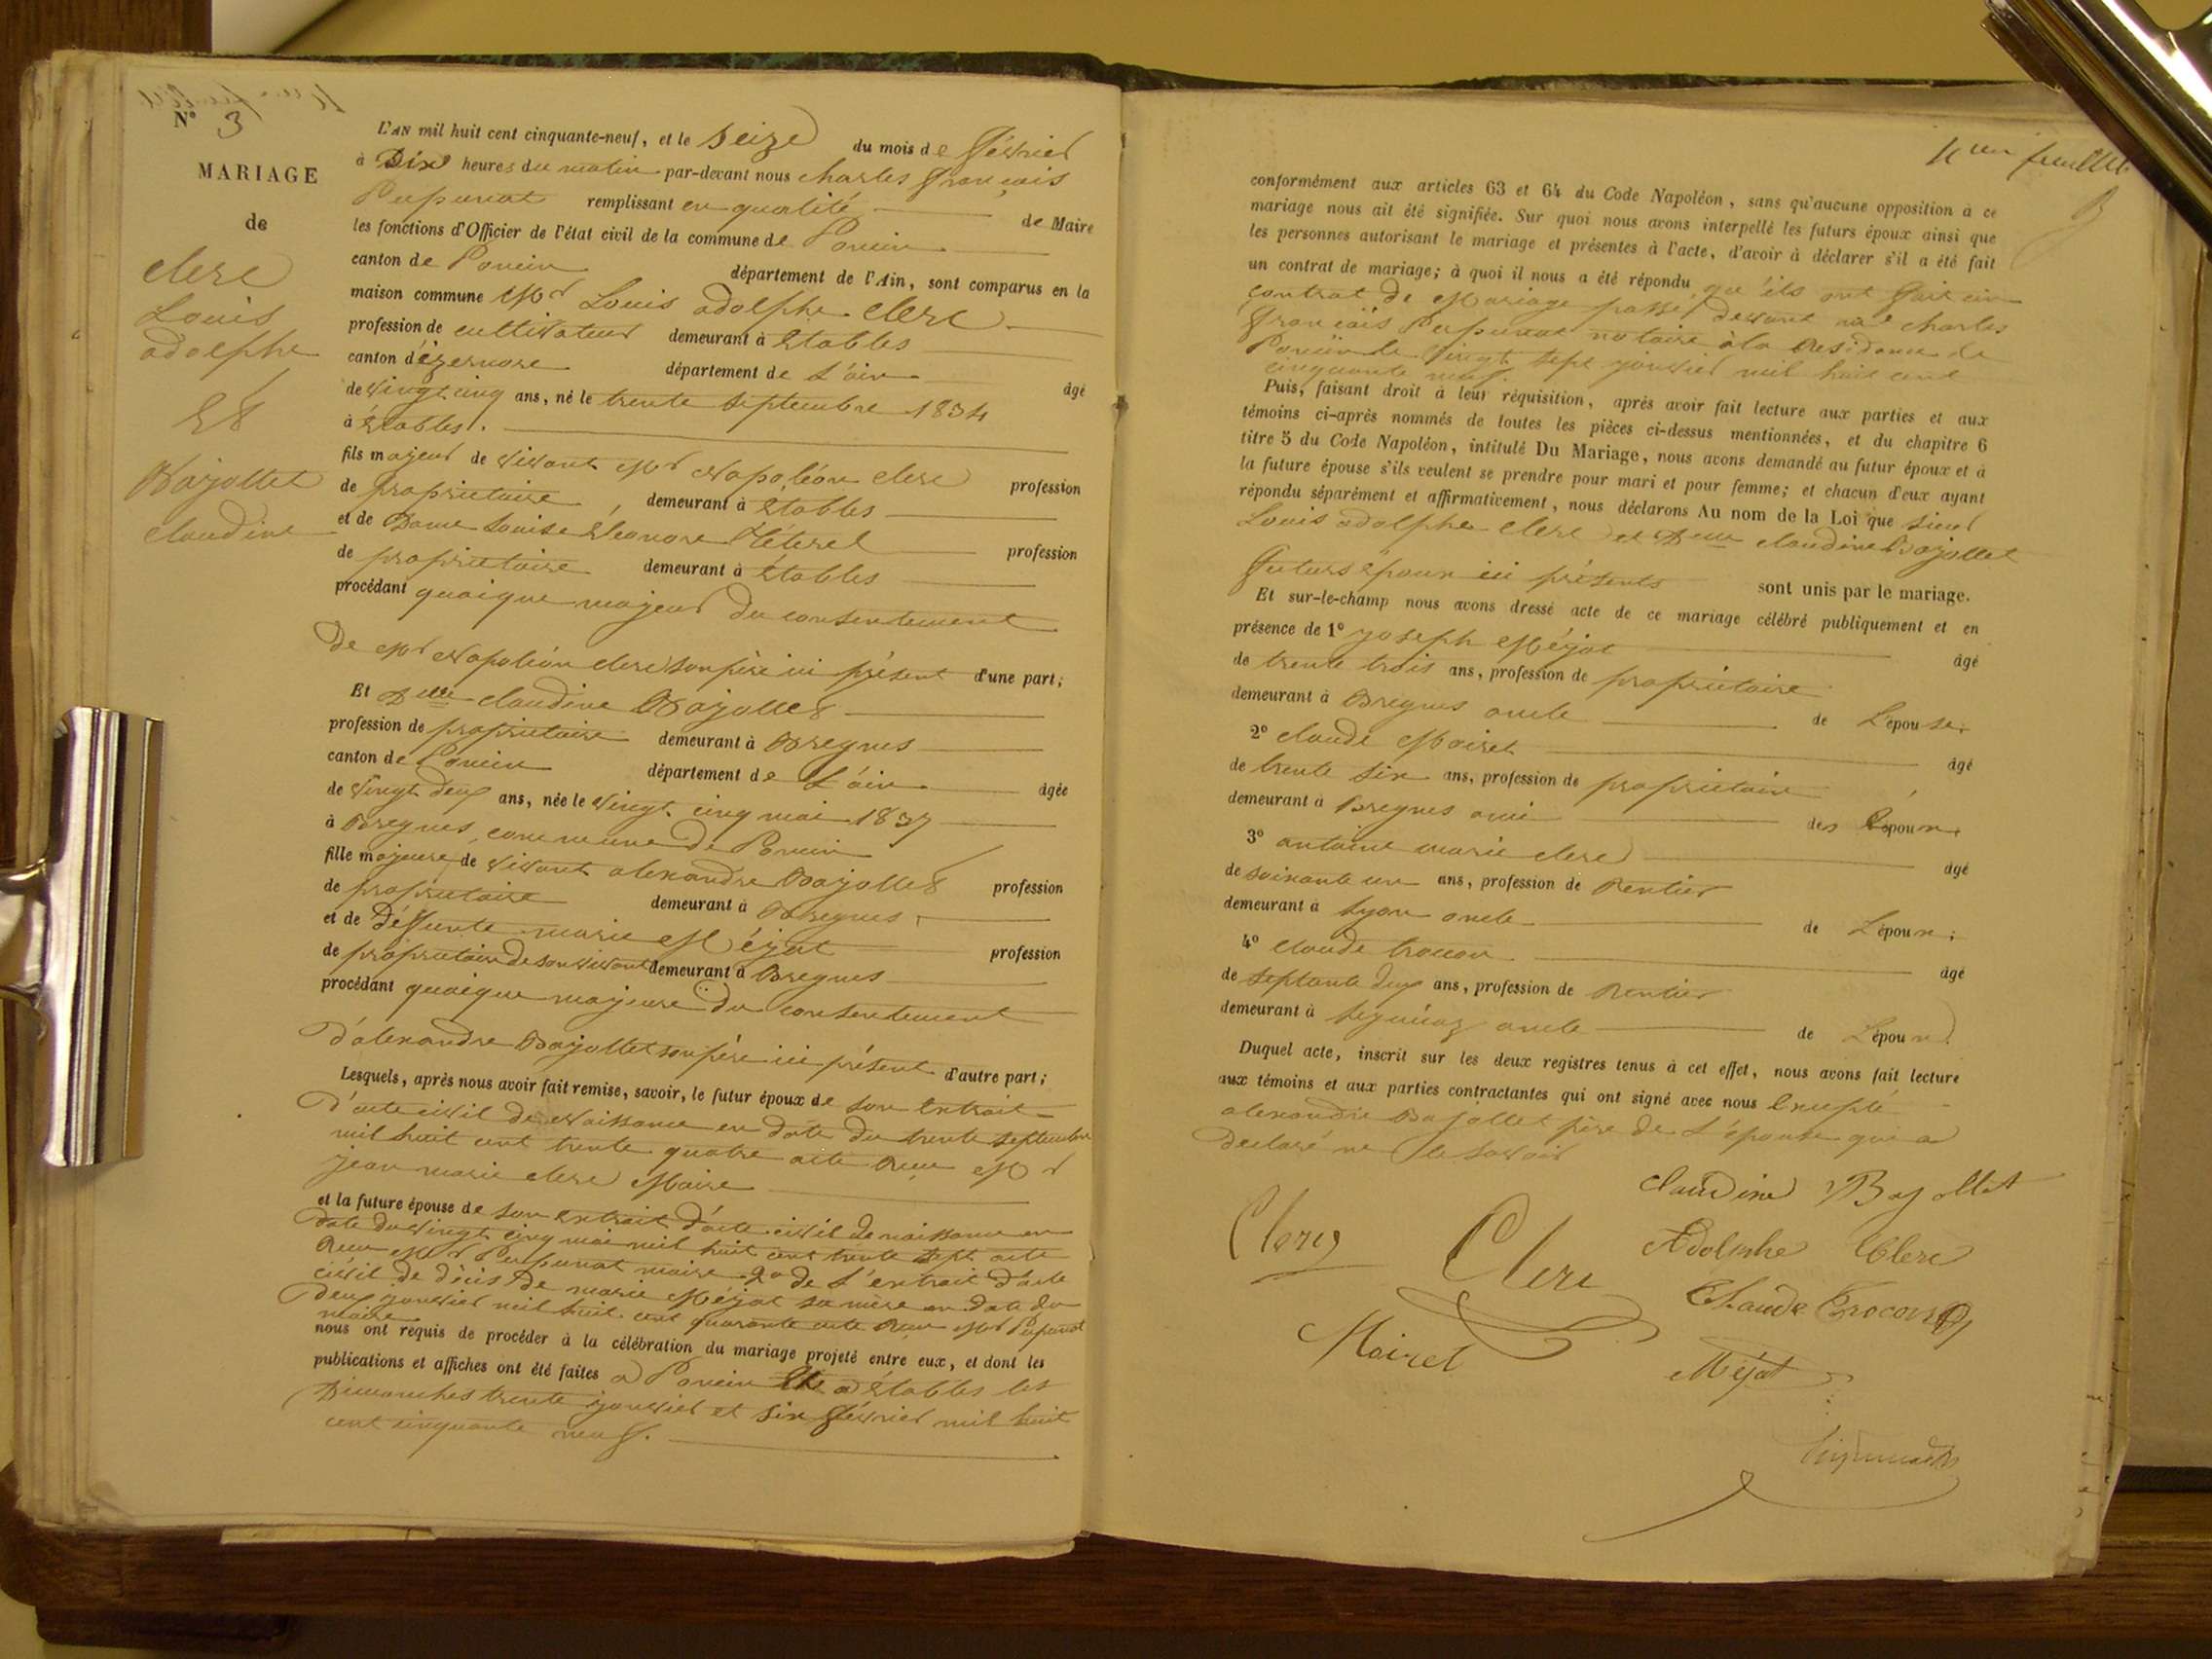 N° 3
MARIAGE
de
clerc
Louis
adolphe
Et
Bajollet
claudine
L'AN mil huit cent cinquante-neuf, et le seize du mois de février
à Dix heures du matin par-devant nous charles françois
remplissant en qualité de Maire
les fonctions d'Officier de l'état civil de la commune de Poncin
canton de Poncin département de l'Ain, sont comparus en la
maison commune Mr Louis adolphe clerc
profession de cultivateur demeurant à Etables
canton d'izernore département de L'ain âgé
de vingt cinq ans, né le trente septembre 1834
à Etables.
fils majeur de vivant Mr Napoléon clerc profession
de propriétaire, demeurant à Etables
et de Dame Louise Eléonore profession
de propriétaire demeurant à Etables
procédant quoique majeur du consentement
De Mr Napoléon clerc son père ici présent d'une part;
Et Delle claudine Bajollet
profession de propriétaire demeurant à Bregnes
canton de Poncin département de L'ain âgée
de vingt deux ans, née le vingt cinq mai 1837
à Bregnes, commune de Poncin
fille majeure de vivant alexandre Bajollet profession
de propriétaire demeurant à Bregnes,
et de Déffunte marie Méjat profession
de propriétaire de son vivant demeurant à Bregnes
procédant quoique majeure du consentement
D'alexandre Bajollet son père ici présent d'autre part;
Lesquels, après nous avoir fait remise, savoir, le futur époux de son Extrait
D'acte civil de Naissance en date du trente septembre
mil huit cent trente quatre acte Reçu Mr
jean marie clerc Maire
et la future épouse de son Extrait D'acte civil de naissance en
date du vingt cinq mai mil huit cent trente sept acte
Reçu Mr maire 2° de L'extrait D'acte
civil de décès de marie Méjat sa mère en date du
deux janvier mil huit cent quarante acte Reçu Mr
maire
nous ont requis de procéder à la célébration du mariage projeté entre eux, et dont les
publications et affiches ont été faites à Poncin à Etables les
Dimanches trente janvier et six février mil huit
cent cinquante neuf.
feuillet
conformément aux articles 63 et 64 du Code Napoléon, sans qu'aucune opposition à ce
mariage nous ait été signifiée. Sur quoi nous avons interpellé les futurs époux ainsi que
les personnes autorisant le mariage et présentes à l'acte, d'avoir à déclarer s'il a été fait
un contrat de mariage; à quoi il nous a été répondu qu'ils ont fait un
contrat de Mariage passé devant me charles
françois notaire à la Residence de
Poncin le vingt sept janvier mil huit cent
cinquante neuf.
Puis, faisant droit à leur réquisition, après avoir fait lecture aux parties et aux
témoins ci-après nommés de toutes les pièces ci-dessus mentionnées, et du chapitre 6
titre 5 du Code Napoléon, intitulé Du Mariage, nous avons demandé au futur époux et à
la future épouse s'ils veulent se prendre pour mari et pour femme; et chacun d'eux ayant
répondu séparément et affirmativement, nous déclarons Au nom de la Loi que sieur
Louis adolphe clerc et Delle claudine Bajollet
futurs époux ici présents sont unis par le mariage.
Et sur-le-champ nous avons dressé acte de ce mariage célébré publiquement et en
présence de 1° joseph Méjat âgé
de trente trois ans, profession de propriétaire
demeurant à Bregnes oncle de L'épouse;
2° claude Moiret âgé
de trente six ans, profession de propriétaire
demeurant à Bregnes ami des époux
3° antoine marie clerc âgé
de soixante un ans, profession de Rentier
demeurant à Lyon oncle de L'époux;
4° claude trocon âgé
de septante deux ans, profession de Rentier
demeurant à oncle de L'époux
Duquel acte, inscrit sur les deux registres tenus à cet effet, nous avons fait lecture
aux témoins et aux parties contractantes qui ont signé avec nous Excepté
alexandre Bajollet père de L'épouse qui a
déclaré ne le savoir
Claudine Bajollet
Clerc
Clerc
Adolphe Clerc
Claude Trocon
Moiret
Méjat